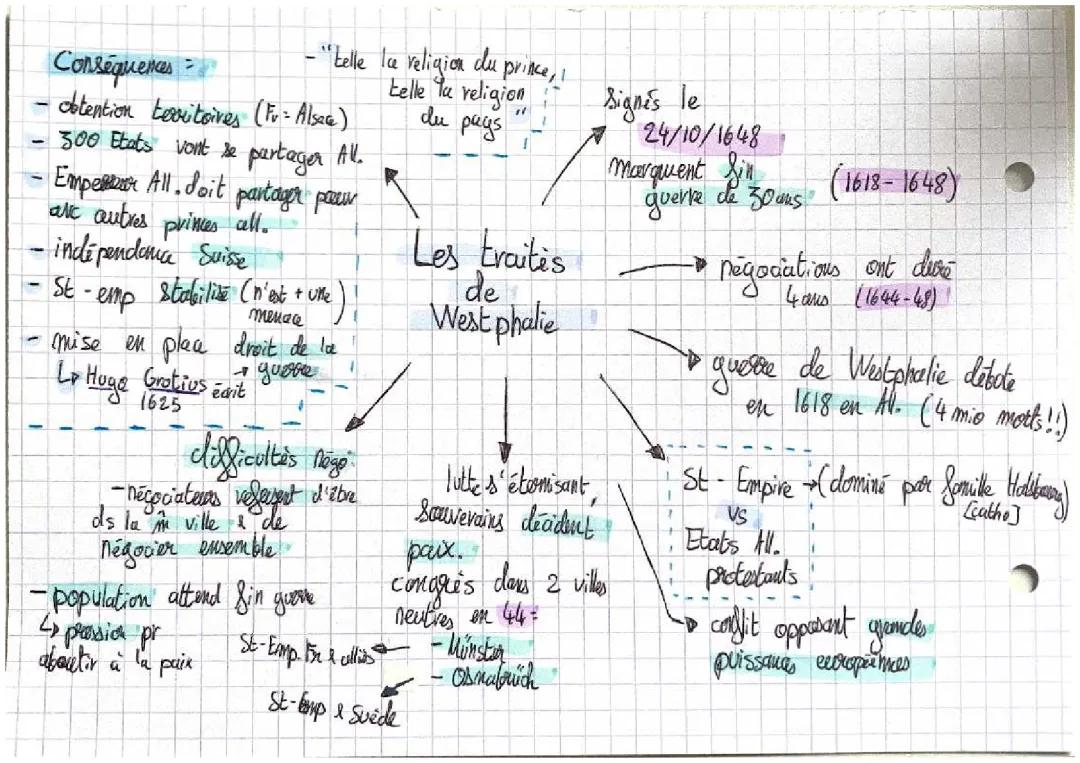 Les traités
de
Westphalie
Conséquences :
- obtention territoires (Fr = Alsace)
- 300 Etats vont se partager All.
- Empereur All. doit partager pouvoir
avc autres princes all.
- indépendance Suisse
- St-emp stabilisé (n'est + une
menace)
- mise en place droit de la
guerre
↳ Hugo Grotius écrit
1625
- "telle la religion du prince,
telle la religion
du pays"
Signés le
24/10/1648
marquent fin
guerre de 30 ans (1618-1648)
négociations ont duré
4 ans (1644-48)
guerre de Westphalie débute
en 1618 en All. (4 mio morts!!)
St-Empire → (dominé par famille Habsbourg)
[catho]
vs
Etats All.
protestants
conflit opposant grandes
puissances européennes
lutte s'éternisant,
souverains décident
paix.
congrès dans 2 villes
neutres en 44 =
- Münster
- Osnabrück
St-Emp. Fr & alliés
St-Emp & Suède
difficultés négo:
- négociateurs refusent d'être
ds la m̂ ville & de
négocier ensemble
- population attend fin guerre
↳ pression pr
aboutir à la paix